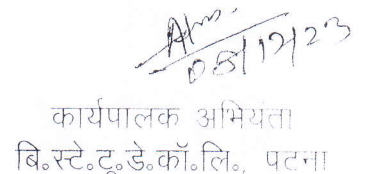 08/12/23
कार्यपालक अभियंता
बि.स्टे.टू.डे.कॉ.लि., पटना